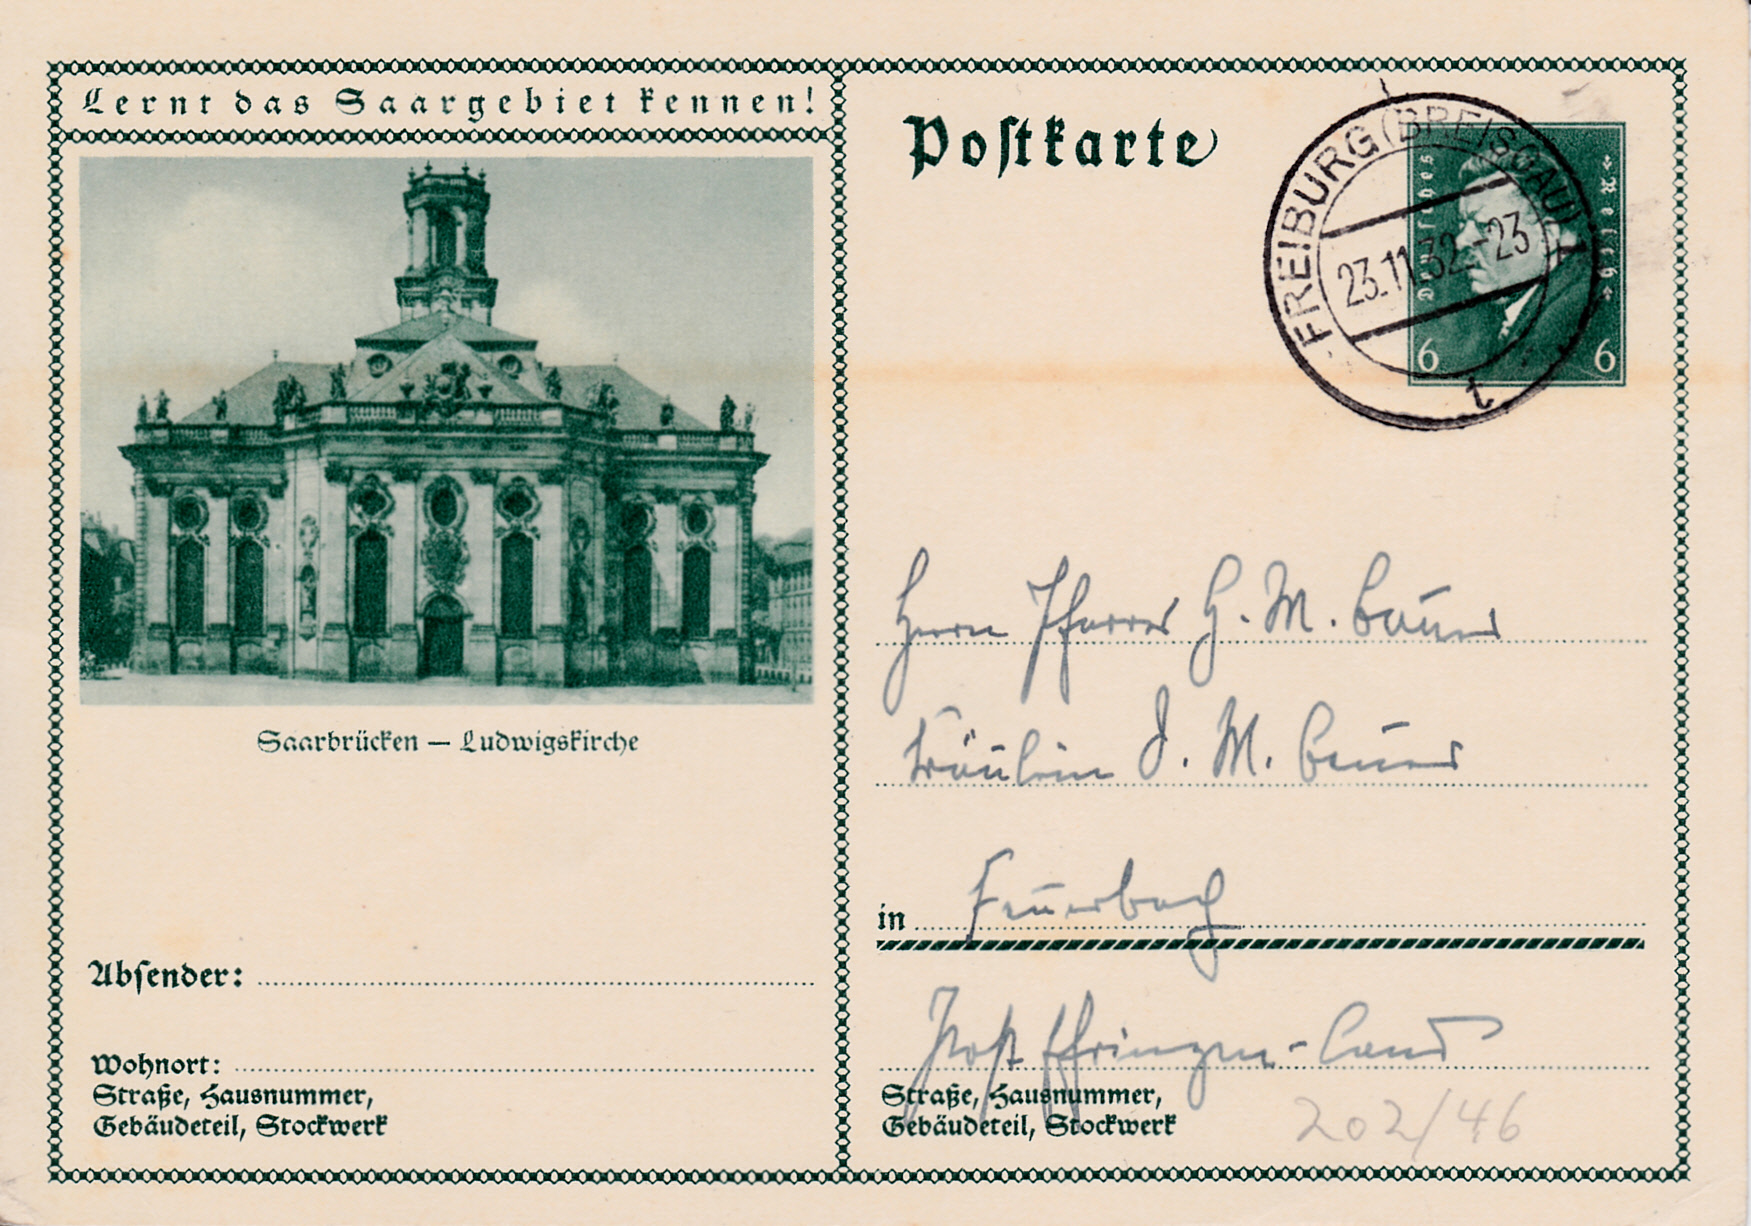 Lernt das Saargebiet kennen!
Saarbrücken — Ludwigskirche
Absender:
Wohnort:
Straße, Hausnummer,
Gebäudeteil, Stockwerk
Postkarte
FREIBURG (BREISGAU) 1
23.11.32.-23
Deutsches Reich
6 6
Herrn Pfarrer G. M. Bauer
Fräulein J. M. Bauer
in Feuerbach
Post Efringen-Land
Straße, Hausnummer,
Gebäudeteil, Stockwerk
202/46